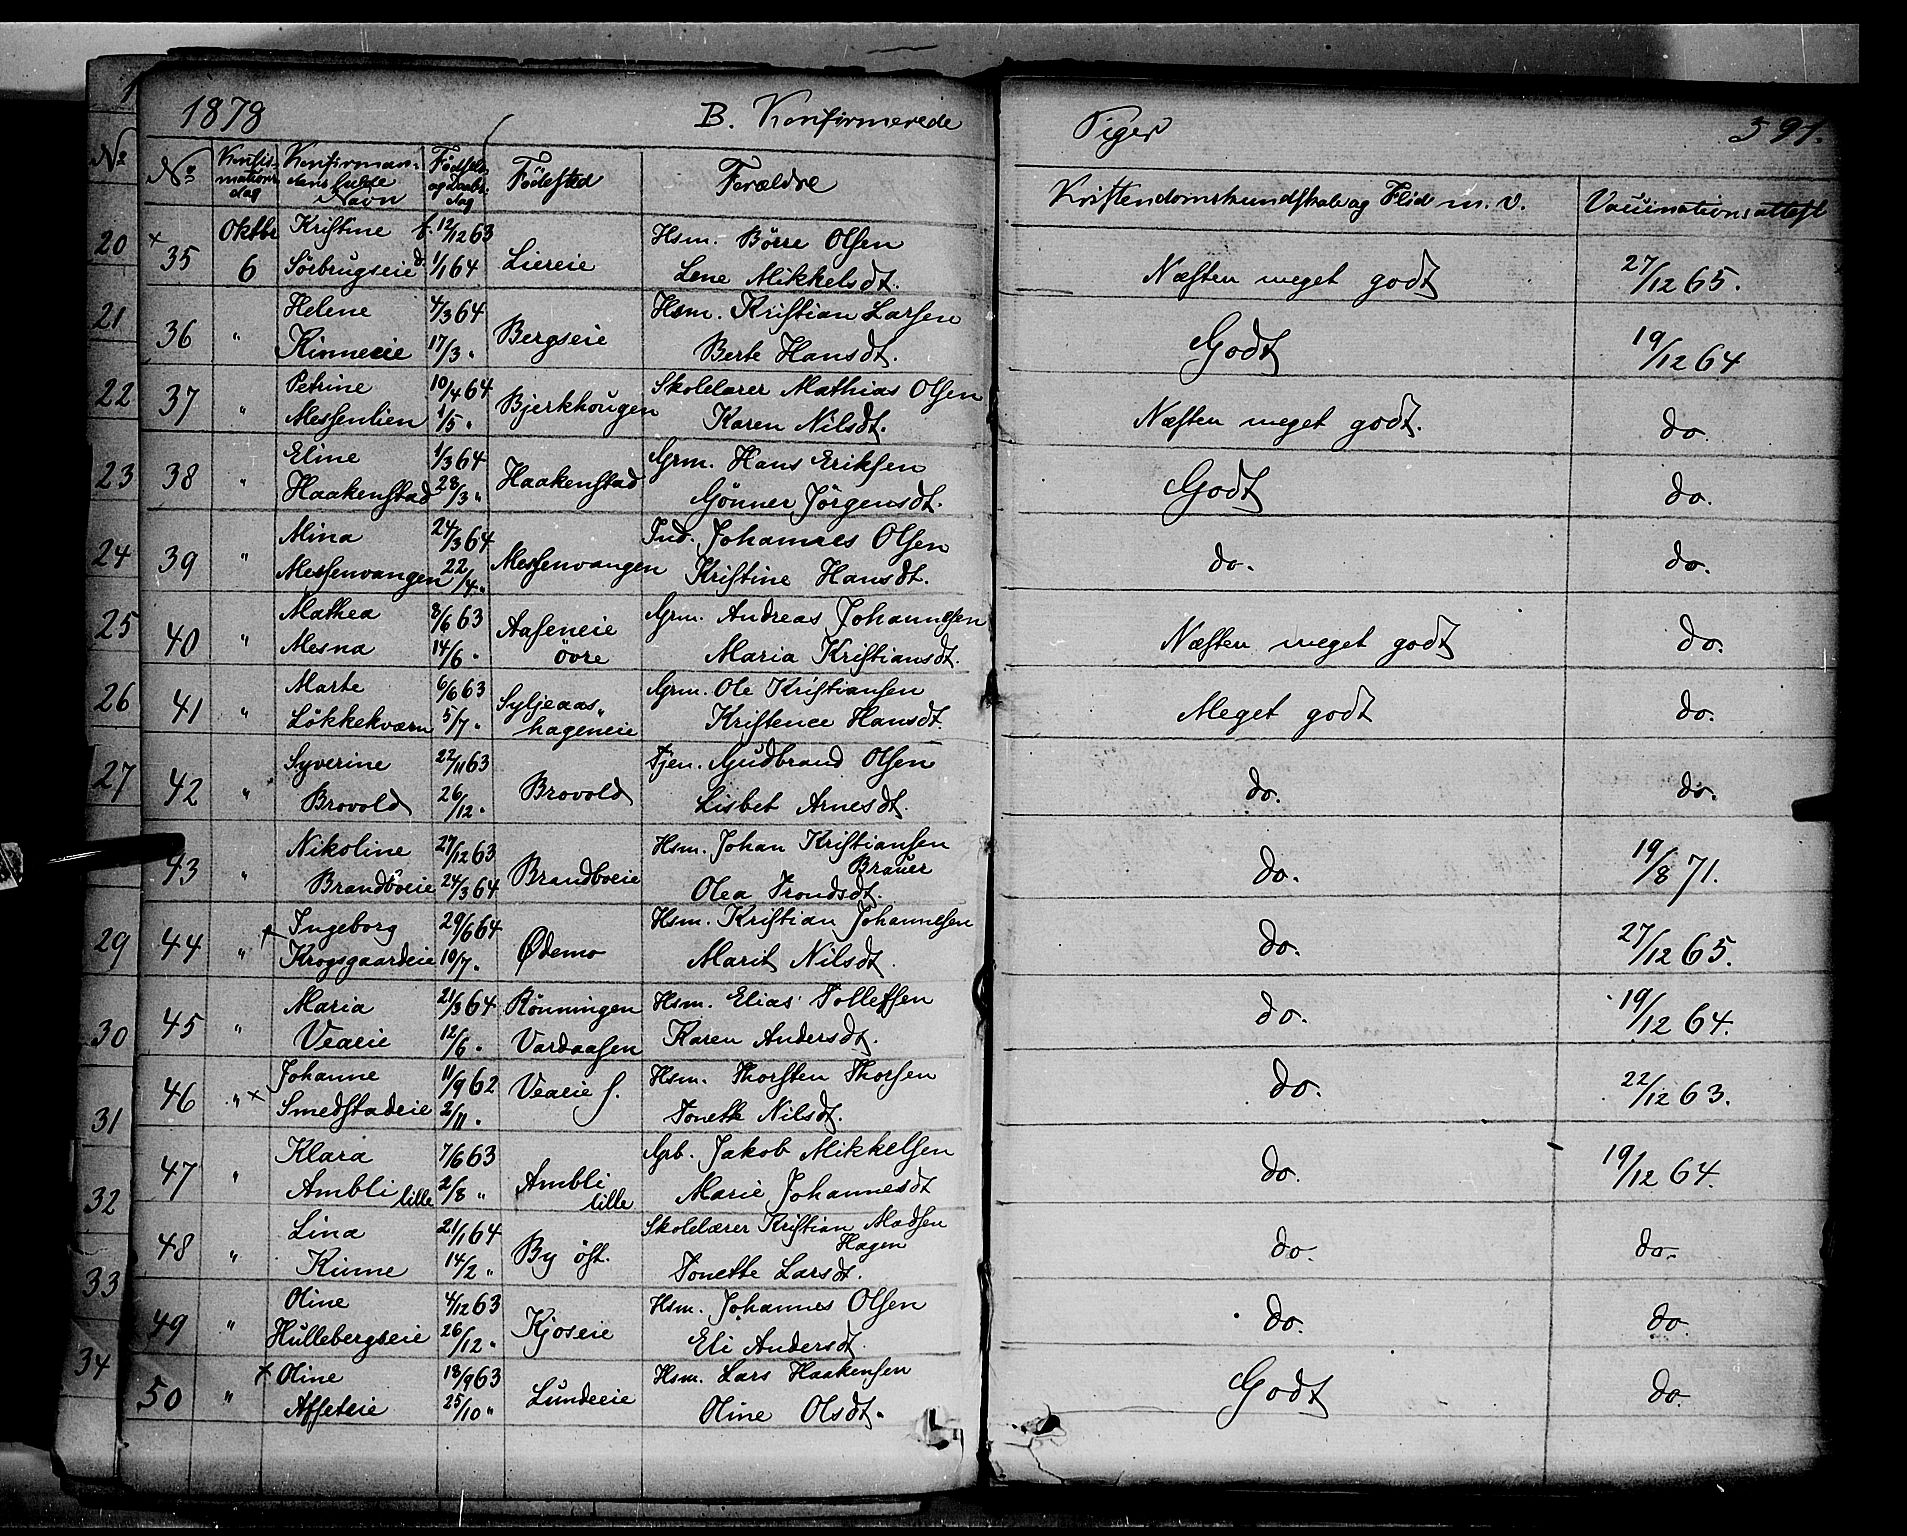 1878 B. Konfirmerede Piger 591.
No Konfirmations dag Konfirmandens fulde Navn Fødsels og Daabsdag Fødested Forældre Kristendomskundskab og Flid m. v. Vaccinationsattest
35 Oktbr Kristine f. 12/12 63 Liereie Hsm. Börre Olsen Næsten meget godt 27/12 65.
6 Sörbrugseie d. 1/1 64 Lene Mikkelsdt.
36 " Helene 4/3 64 Bergseie Hsm. Kristian Larsen Godt 19/12 64
Kinneeie 17/3 " Berte Hansdt.
37 " Petrine 10/4 64 Bjerkhougen Skolelærer Mathias Olsen Næsten meget godt. do.
Messenlien 1/5 " Karen Nilsdt.
38 " Eline 1/3 64 Haakenstad Grm. Hans Eriksen Godt do.
Haakenstad 28/3 " Gönner Jörgensdt.
39 " Mina 24/3 64 Messenvangen Ind. Johannes Olsen do. do.
Messenvangen 22/4 " Kristine Hansdt.
40 " Mathea 8/6 63 Aaseneie Grm. Andreas Johannesen Næsten meget godt do.
Mesna 14/6 " övre Maria Kristiansdt.
41 " Marte 6/6 63 Syljeaas- Grm. Ole Kristiansen Meget godt do.
Lökkekværn 5/7 " hageneie Kristence Hansdt.
42 " Syverine 22/11 63 Brovold Tjen. Gudbrand Olsen do. do.
Brovold 26/12 " Lisbet Arnesdt.
43 " Nikoline 27/12 63 Brandboeie Hsm. Johan Kristiansen do. 19/8 71.
Brauer
Brandboeie 24/3 64 Olea Trondsdt.
44 " Ingeborg 29/6 64 Ødemo Hsm. Kristian Johannesen do. 27/12 65.
Krogsgaardeie 10/7 " Marit Nilsdt.
45 " Maria 21/3 64 Rönningen Hsm. Elias Tollefsen do. 19/12 64.
Veaeie 12/6 " Vardaasen Karen Andersdt.
46 " x Johanne 11/9 62 Veaeie S. Hsm. Thorsten Thorsen do. 22/12 63.
Smedstadeie 2/11 " Tonette Nilsdt.
47 " Klara 7/6 63 Ambli Grb. Jakob Mikkelsen do. 19/12 64.
Ambli lille 2/8 " lille Marie Johannesdt
48 " Lina 21/1 64 By öst. Skolelærer Kristian Madsen do. do.
Hagen
Kinne 14/2 " Tonette Larsdt.
49 " Oline 4/12 63 Kjoseie Hsm. Johannes Olsen do. do.
Hullebergseie 26/12 " Eli Andersdt.
50 " x Oline 18/9 63 Lundeeie Hsm. Lars Haakensen Godt do.
Affeteie 25/10 " Oline Olsdt.
No
20
21
22
23
24
25
26
27
29
30
31
32
33
34